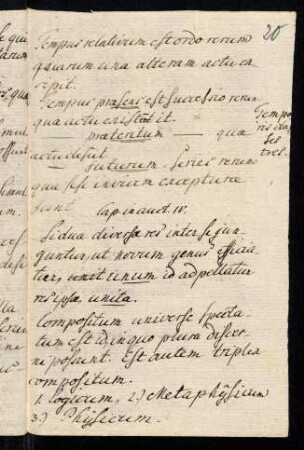 20
Tempus relativum est ordo rerum
quarum una alteram actu ex
cipit.
Tempus praesens est successio rerum
quae actu existit.
praeteritum — quae
actu desiit
futurum — series rerum
quae sese invicem exceptura
sunt
Tempo
ris
tres.
Cap. IV.
Si duae diversae res inter se jun
guntur, ut novum genus efficia
tur, unum id adpellatur
res ipsae unita.
Compositum universe specta
tum est id, in quo plura discer
ni possunt. Est autem triplex
compositum.
1. Logicum, 2.) Metaphÿsicum
3.) Phÿsicum.